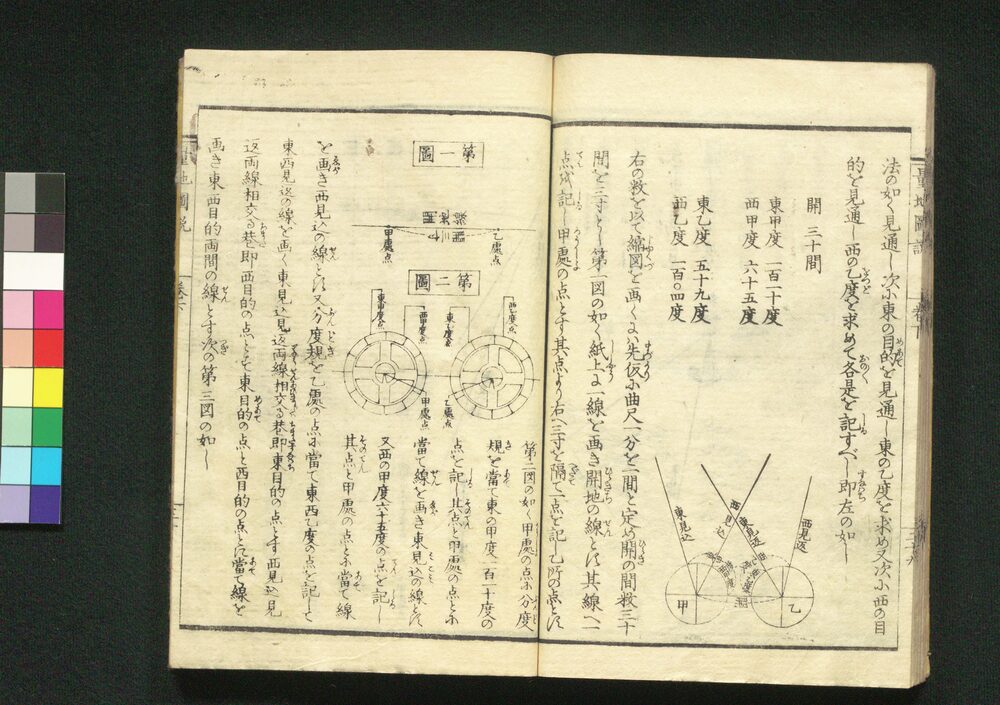 法の如く見通し次に東の目的を見通し東の乙度を求め又次に西の目
的を見通し西の乙度を求めて各是を記すべし即左の如し
開 三十間
東甲度 一百二十度
西甲度 六十五度
東乙度 五十九度
西乙度 一百〇四度
右の数を以て縮図を画くには先仮に曲尺一分を一間と定め開の間数三十
間を三寸とし第一図の如く紙上に一線を画き開地の線とす其線へ一
点を記し甲處の点とす其点より右へ三寸を隔て一点を記し乙所の点とす
東見込
西見込
東見返
西見返
甲
乙
開
第一圖
甲處点
乙處点
第二圖
東甲度点
西甲度点
東乙度点
西乙度点
甲處点
乙處点
第二図の如く甲處の点に分度
規を當て東の甲度一百二十度の
点を記し其点と甲處の点とに
當て線を画き東見込の線とす
又西の甲度六十五度の点を記し
其点と甲處の点とに當て線
を画き西見込の線とす又分度規を乙處の点に當て東西乙度の点を記して
東西見返の線を画く東見込見返両線相交る巷即東目的の点とす西見込見
返両線相交る巷即西目的の点とす東目的の点と西目的の点とに當て線を
画き東西目的両間の線とす次の第三図の如し
量地圖説
巻下